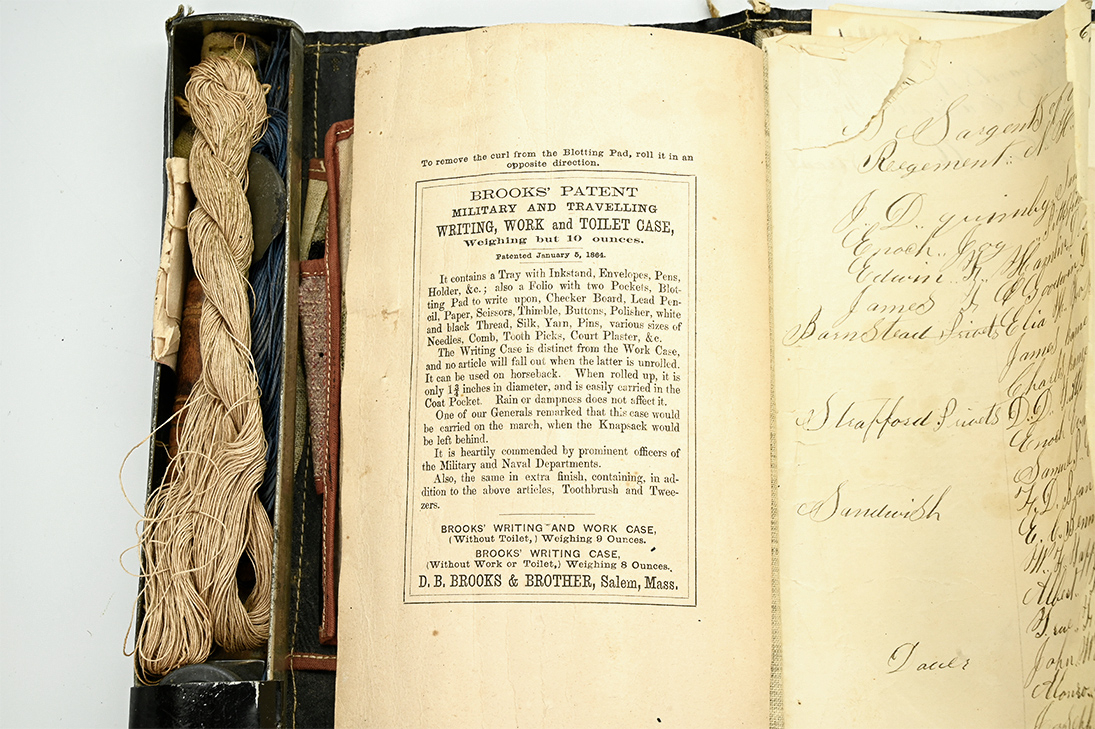 To remove the curl from the Blotting Pad, roll it in an
opposite direction.
BROOKS' PATENT
MILITARY AND TRAVELLING
WRITING, WORK and TOILET CASE,
Weighing but 10 ounces.
Patented January 5, 1864.
It contains a Tray with Inkstand, Envelopes, Pens,
Holder, &c.; also a Folio with two Pockets, Blot-
ting Pad to write upon, Checker Board, Lead Pen-
cil, Paper, Scissors, Thimble, Buttons, Polisher, white
and black Thread, Silk, Yarn, Pins, various sizes of
Needles, Comb, Tooth Picks, Court Plaster, &c.
The Writing Case is distinct from the Work Case,
and no article will fall out when the latter is unrolled.
It can be used on horseback. When rolled up, it is
only 1¾ inches in diameter, and is easily carried in the
Coat Pocket. Rain or dampness does not affect it.
One of our Generals remarked that this case would
be carried on the march, when the Knapsack would
be left behind.
It is heartily commended by prominent officers of
the Military and Naval Departments.
Also, the same in extra finish, containing, in ad-
dition to the above articles, Toothbrush and Twee-
zers.
BROOKS' WRITING AND WORK CASE,
(Without Toilet,) Weighing 9 Ounces.
BROOKS' WRITING CASE,
(Without Work or Toilet,) Weighing 8 Ounces.
D. B. BROOKS & BROTHER, Salem, Mass.
Sargents
Regement
J. D. quimby
Enoch
Edwin F.
James
Barnstead Privets Elia
James
Charl
Strafford Privets D. D.
Enoch
Samu
Sandwish F. D.
E. C.
W. F.
Albert
Dover John
Alonzo
Joseph